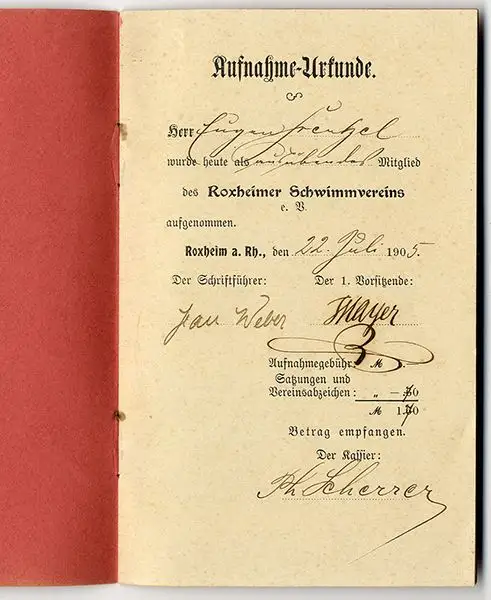 Aufnahme-Urkunde.
Herr Eugen Frenzel
wurde heute als ausübendes Mitglied
des Roxheimer Schwimmvereins
e. V.
aufgenommen.
Roxheim a. Rh., den 22. Juli 1905.
Der Schriftführer: Der 1. Vorsitzende:
Jean Weber Mayer
Aufnahmegebühr: M
Satzungen und
Vereinsabzeichen: „
M
Betrag empfangen.
Der Kassier:
Ph. Scherrer